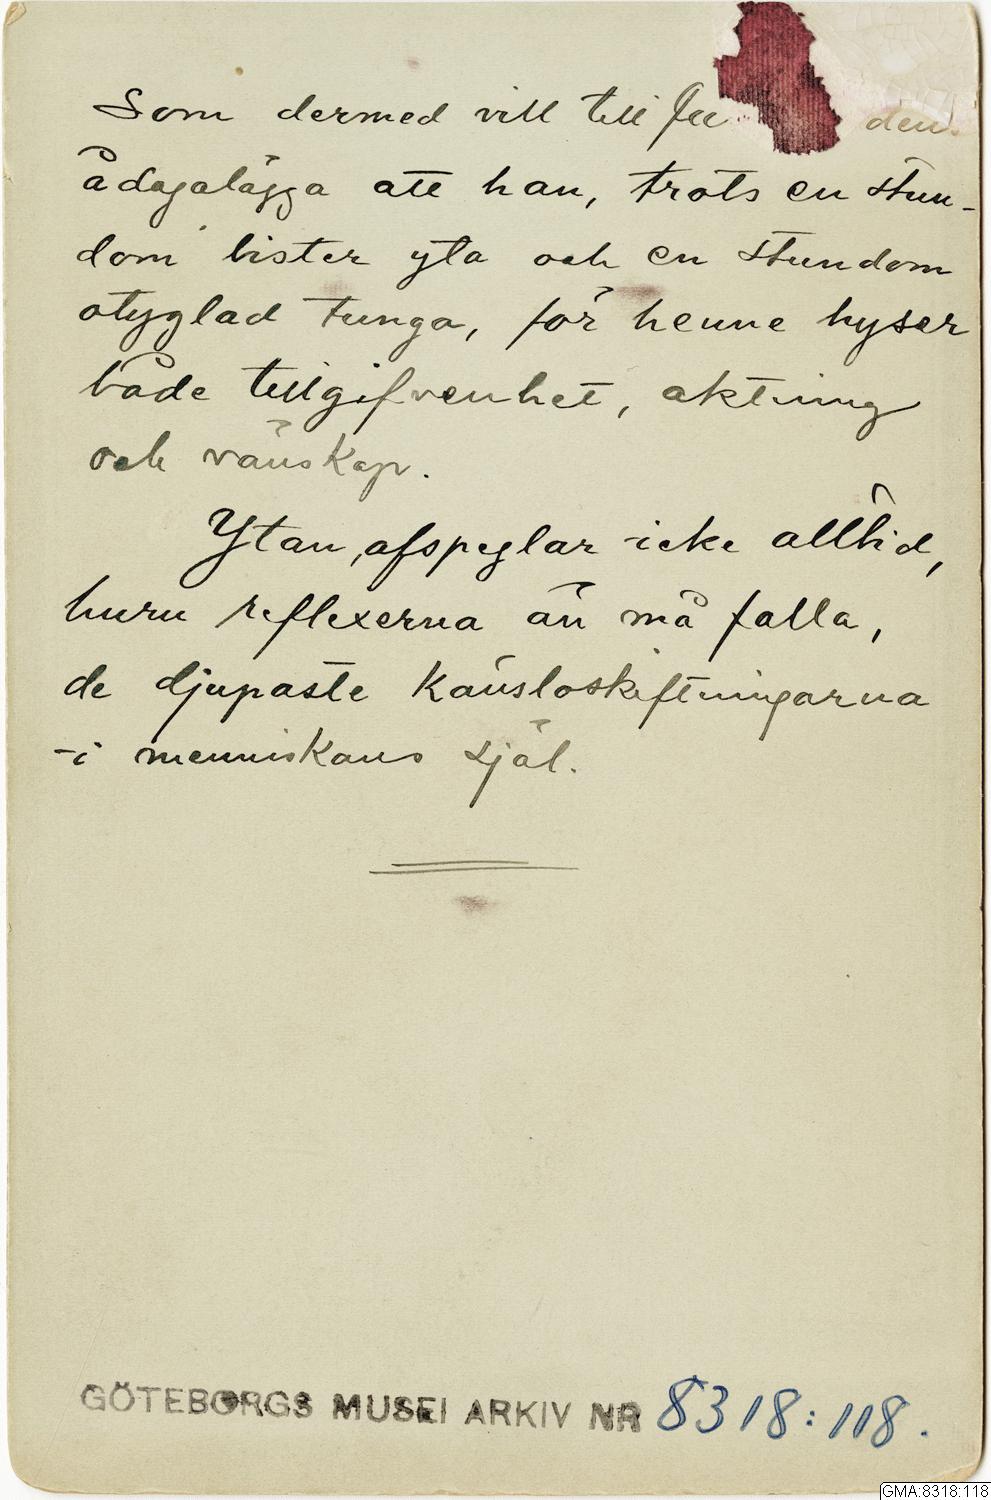 Som dermed vill till den
ådagalägga att han, trots en stun-
dom bister yta och en stundom
otyglad tunga, för henne hyser
både tillgifvenhet, aktning
och vänskap.
Ytan, afspeglar icke alltid,
huru reflexerna än må falla,
de djupaste känsloskiftningarna
i menniskans själ.
GÖTEBORGS MUSEI ARKIV NR 8318:118.
GMA:8318:118